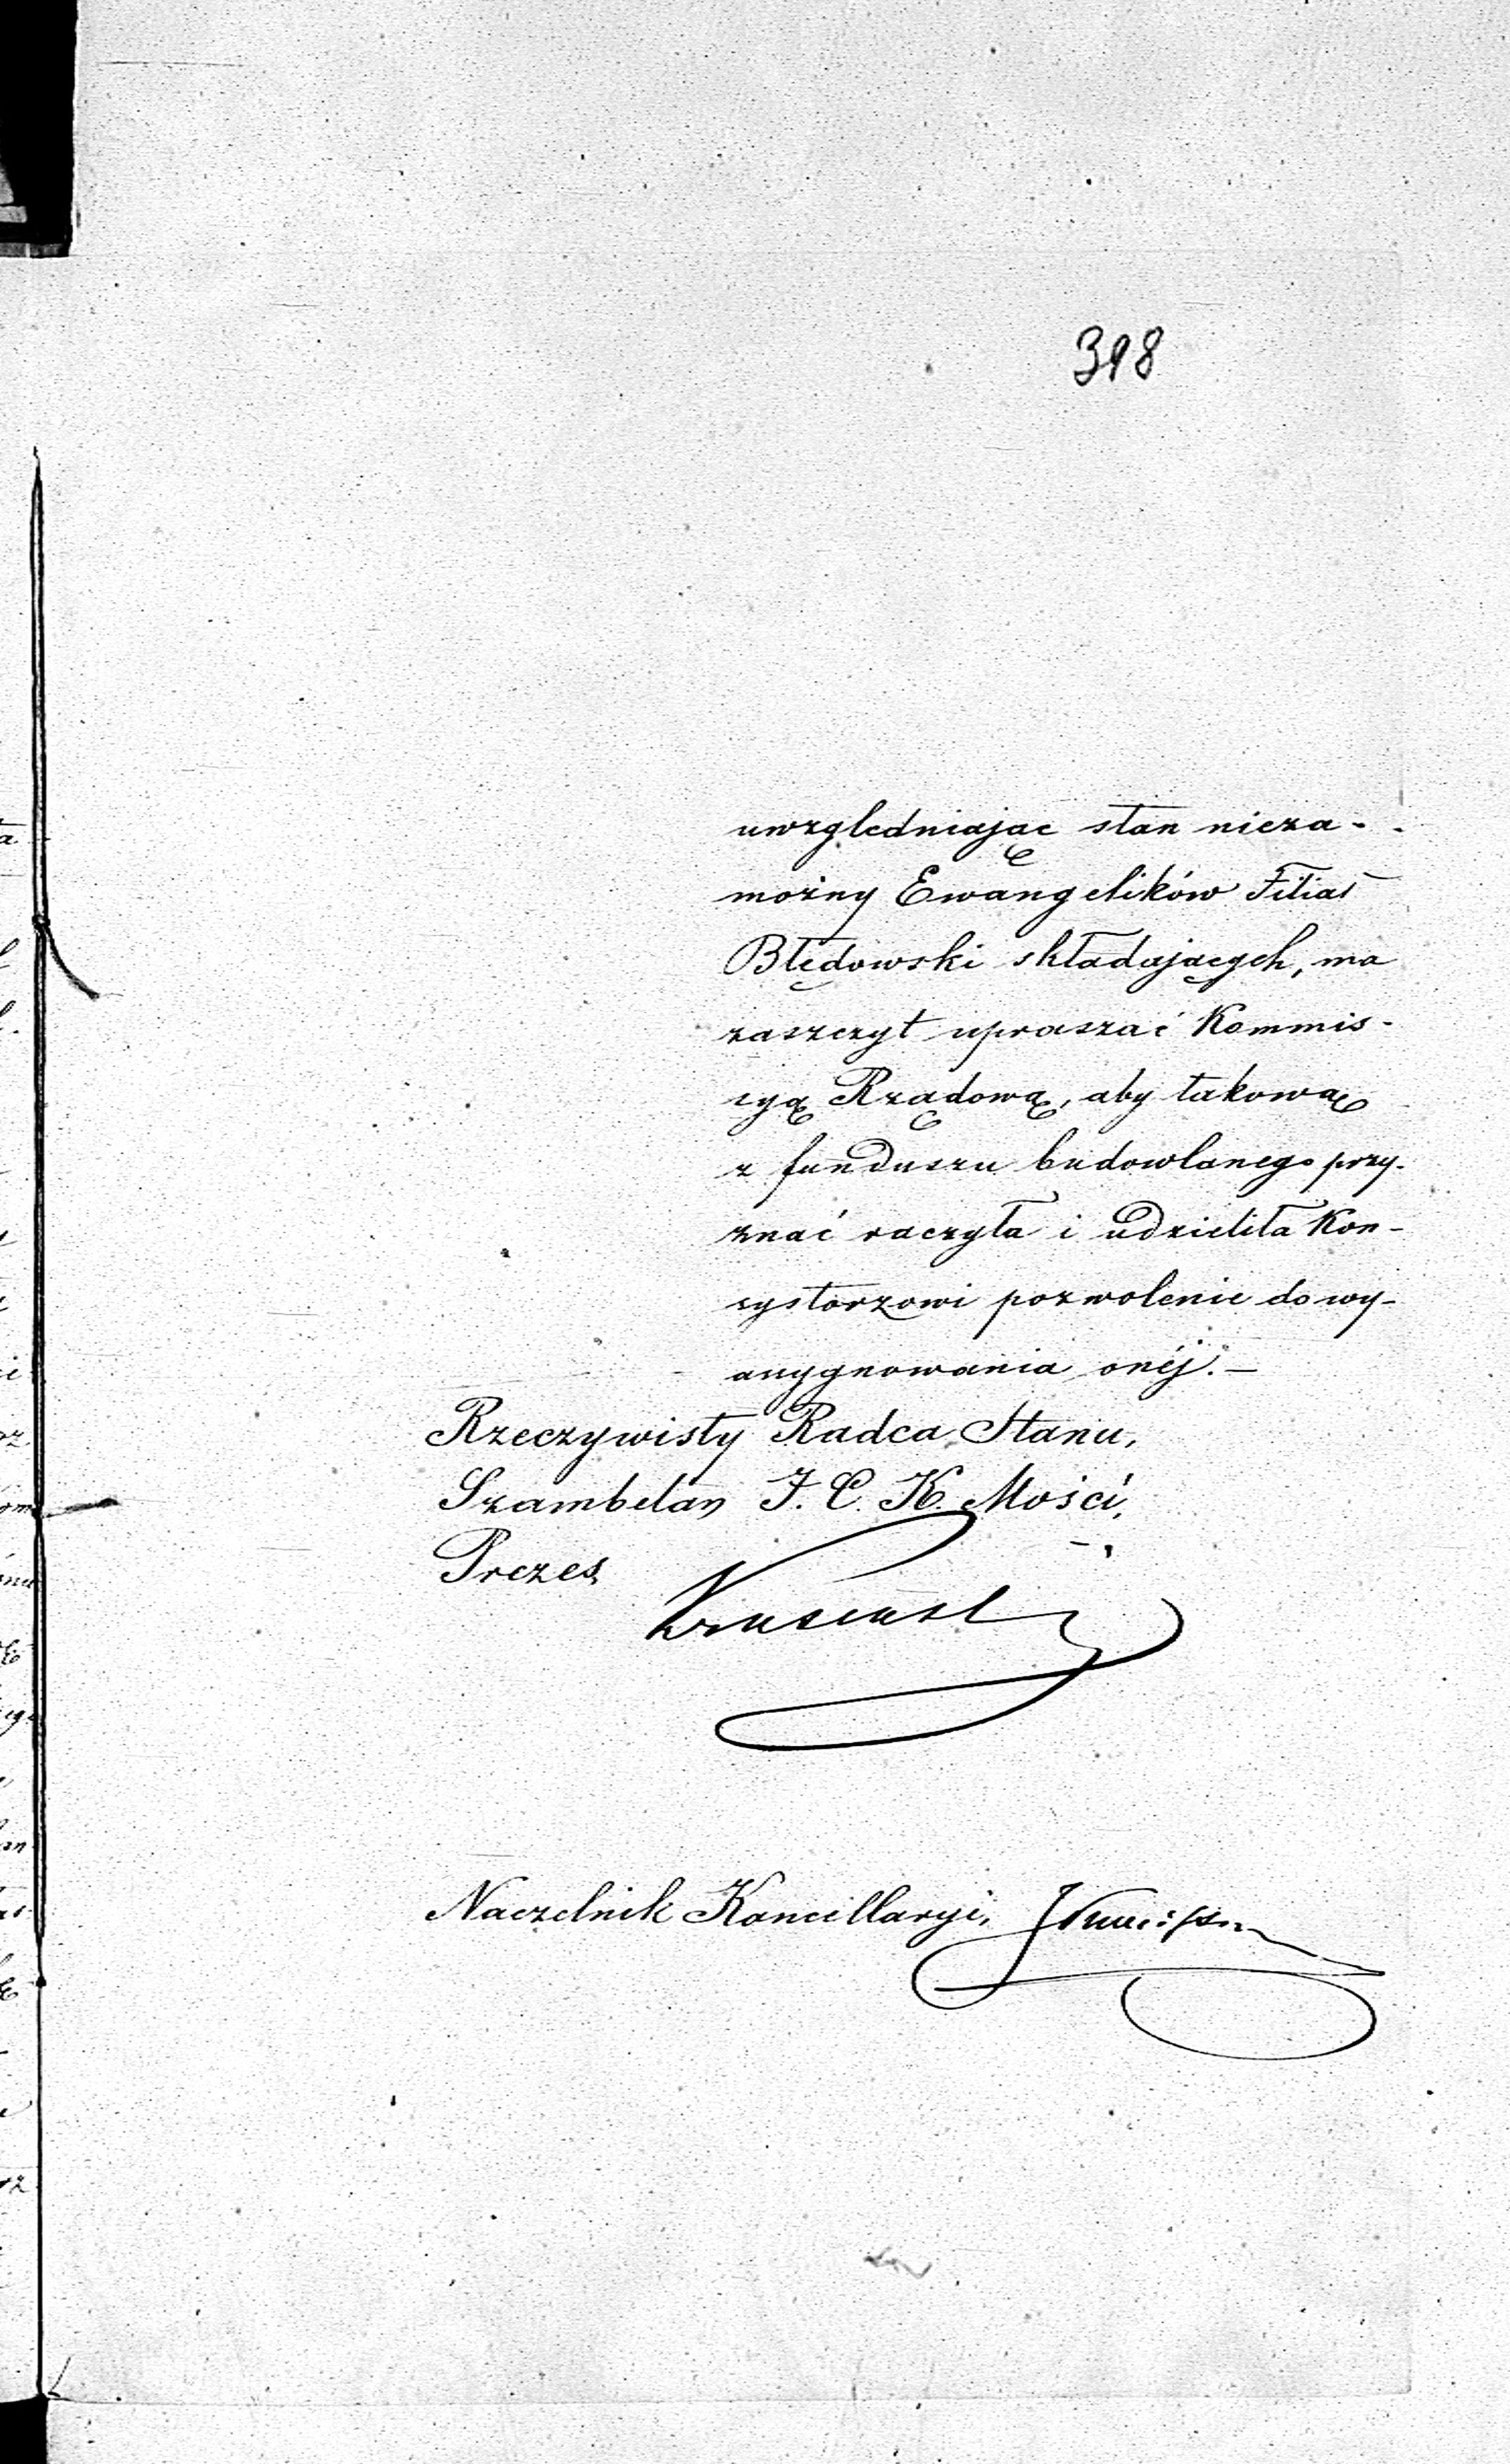 398
uwzględniając stan nieza-
możny Ewangelików Filiał
Błędowski składających, ma
zaszczyt upraszać Kommis-
syą Rządową, aby takową
z funduszu budowlanego przy-
znać raczyła i udzieliła Kon-
systorzowi pozwolenie do wy-
asygnowania onéj.—
Rzeczywisty Radca Stanu,
Szambelan J. C. K. Mości,
Prezes
Naczelnik Kancellaryi,